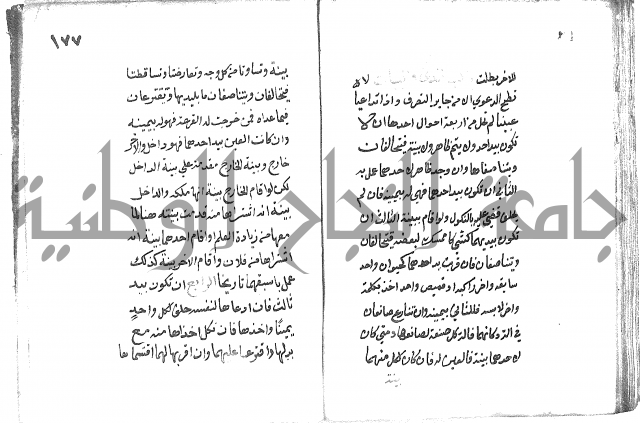 للآخر بطلت لا
تصح الدعوى الا من جايز التصرف واذا تداعيا
عينا لم تخل من اربعة احوال احدها ان لا
تكون بيد احد ولا ثم ظاهر ولا بينة فيتحالفان
ويتناصفاها وان وجد ظاهر لاحدهما عمل به
الثاني ان تكون بيد احدهما فهي له بيمينه فان لم
يحلف قضي عليه بالنكول ولو اقام بينة الثالث ان
تكون بيديهما كشي كل ممسك لبعضه فيتحالفان
ويتناصفان فان قويت يد احدهما كحيوان واحد
سايقه واخر راكبه او قميص واحد اخذ بكمه
واخر لابسه فللثاني بيمينه وان تنازع صانعان
في الة دكانهما فالة كل صنعة لصانعها ومتى كان
لاحدهما بينة فالعين له فان كان لكل منهما
بينة
١٧٧
بينة وتساوتا من كل وجه تعارضتا وتساقطتا
فيتحالفان ويتناصفان ما بايديهما ويقترعان
فيما عداه فمن خرجت له القرعة فهو له بيمينه
وان كانت العين بيد احدهما فهو داخل والاخر
خارج وبينة الخارج مقدمة على بينة الداخل
لكن لو اقام الخارج بينة انها ملكه والداخل
بينة انه اشتراها منه قدمت بينته هنا لما
معها من زيادة العلم او اقام احدهما بينة انه
اشتراها من فلان واقام الاخر بينة كذلك
عمل باسبقهما تاريخا الرابع ان تكون بيد
ثالث فان ادعاها لنفسه حلف لكل واحد
يمينا واخذها فان نكل اخذاها منه مع
بدلها واقترعا عليهما وان اقر بها لهما اقتسماها
جامعة النجاح الوطنية